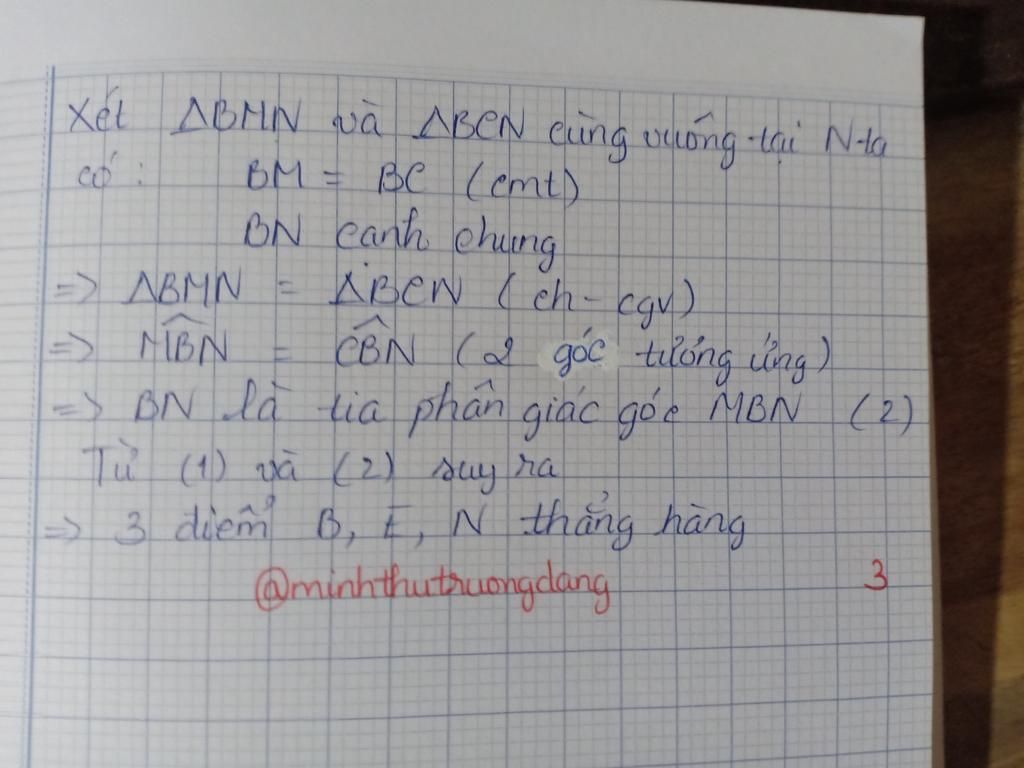 Xét ΔBMN và ΔBCN cùng vuông tại N ta
có : BM = BC (cmt)
BN cạnh chung
=> ΔBMN = ΔBCN (ch - cgv)
=> M̂BN = ĈBN (2 góc tương ứng)
=> BN là tia phân giác góc MBN (2)
Từ (1) và (2) suy ra
=> 3 điểm B, E, N thẳng hàng
@minhthutruongdang 3